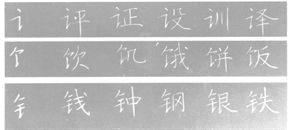 讠 评 证 设 训 译
饣 饮 饥 饿 饼 饭
钅 钱 钟 钢 银 铁